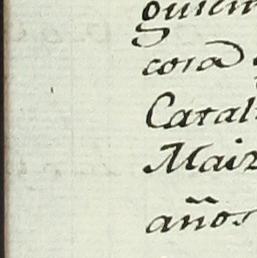 guien
cosa
Catal
Maiz
años